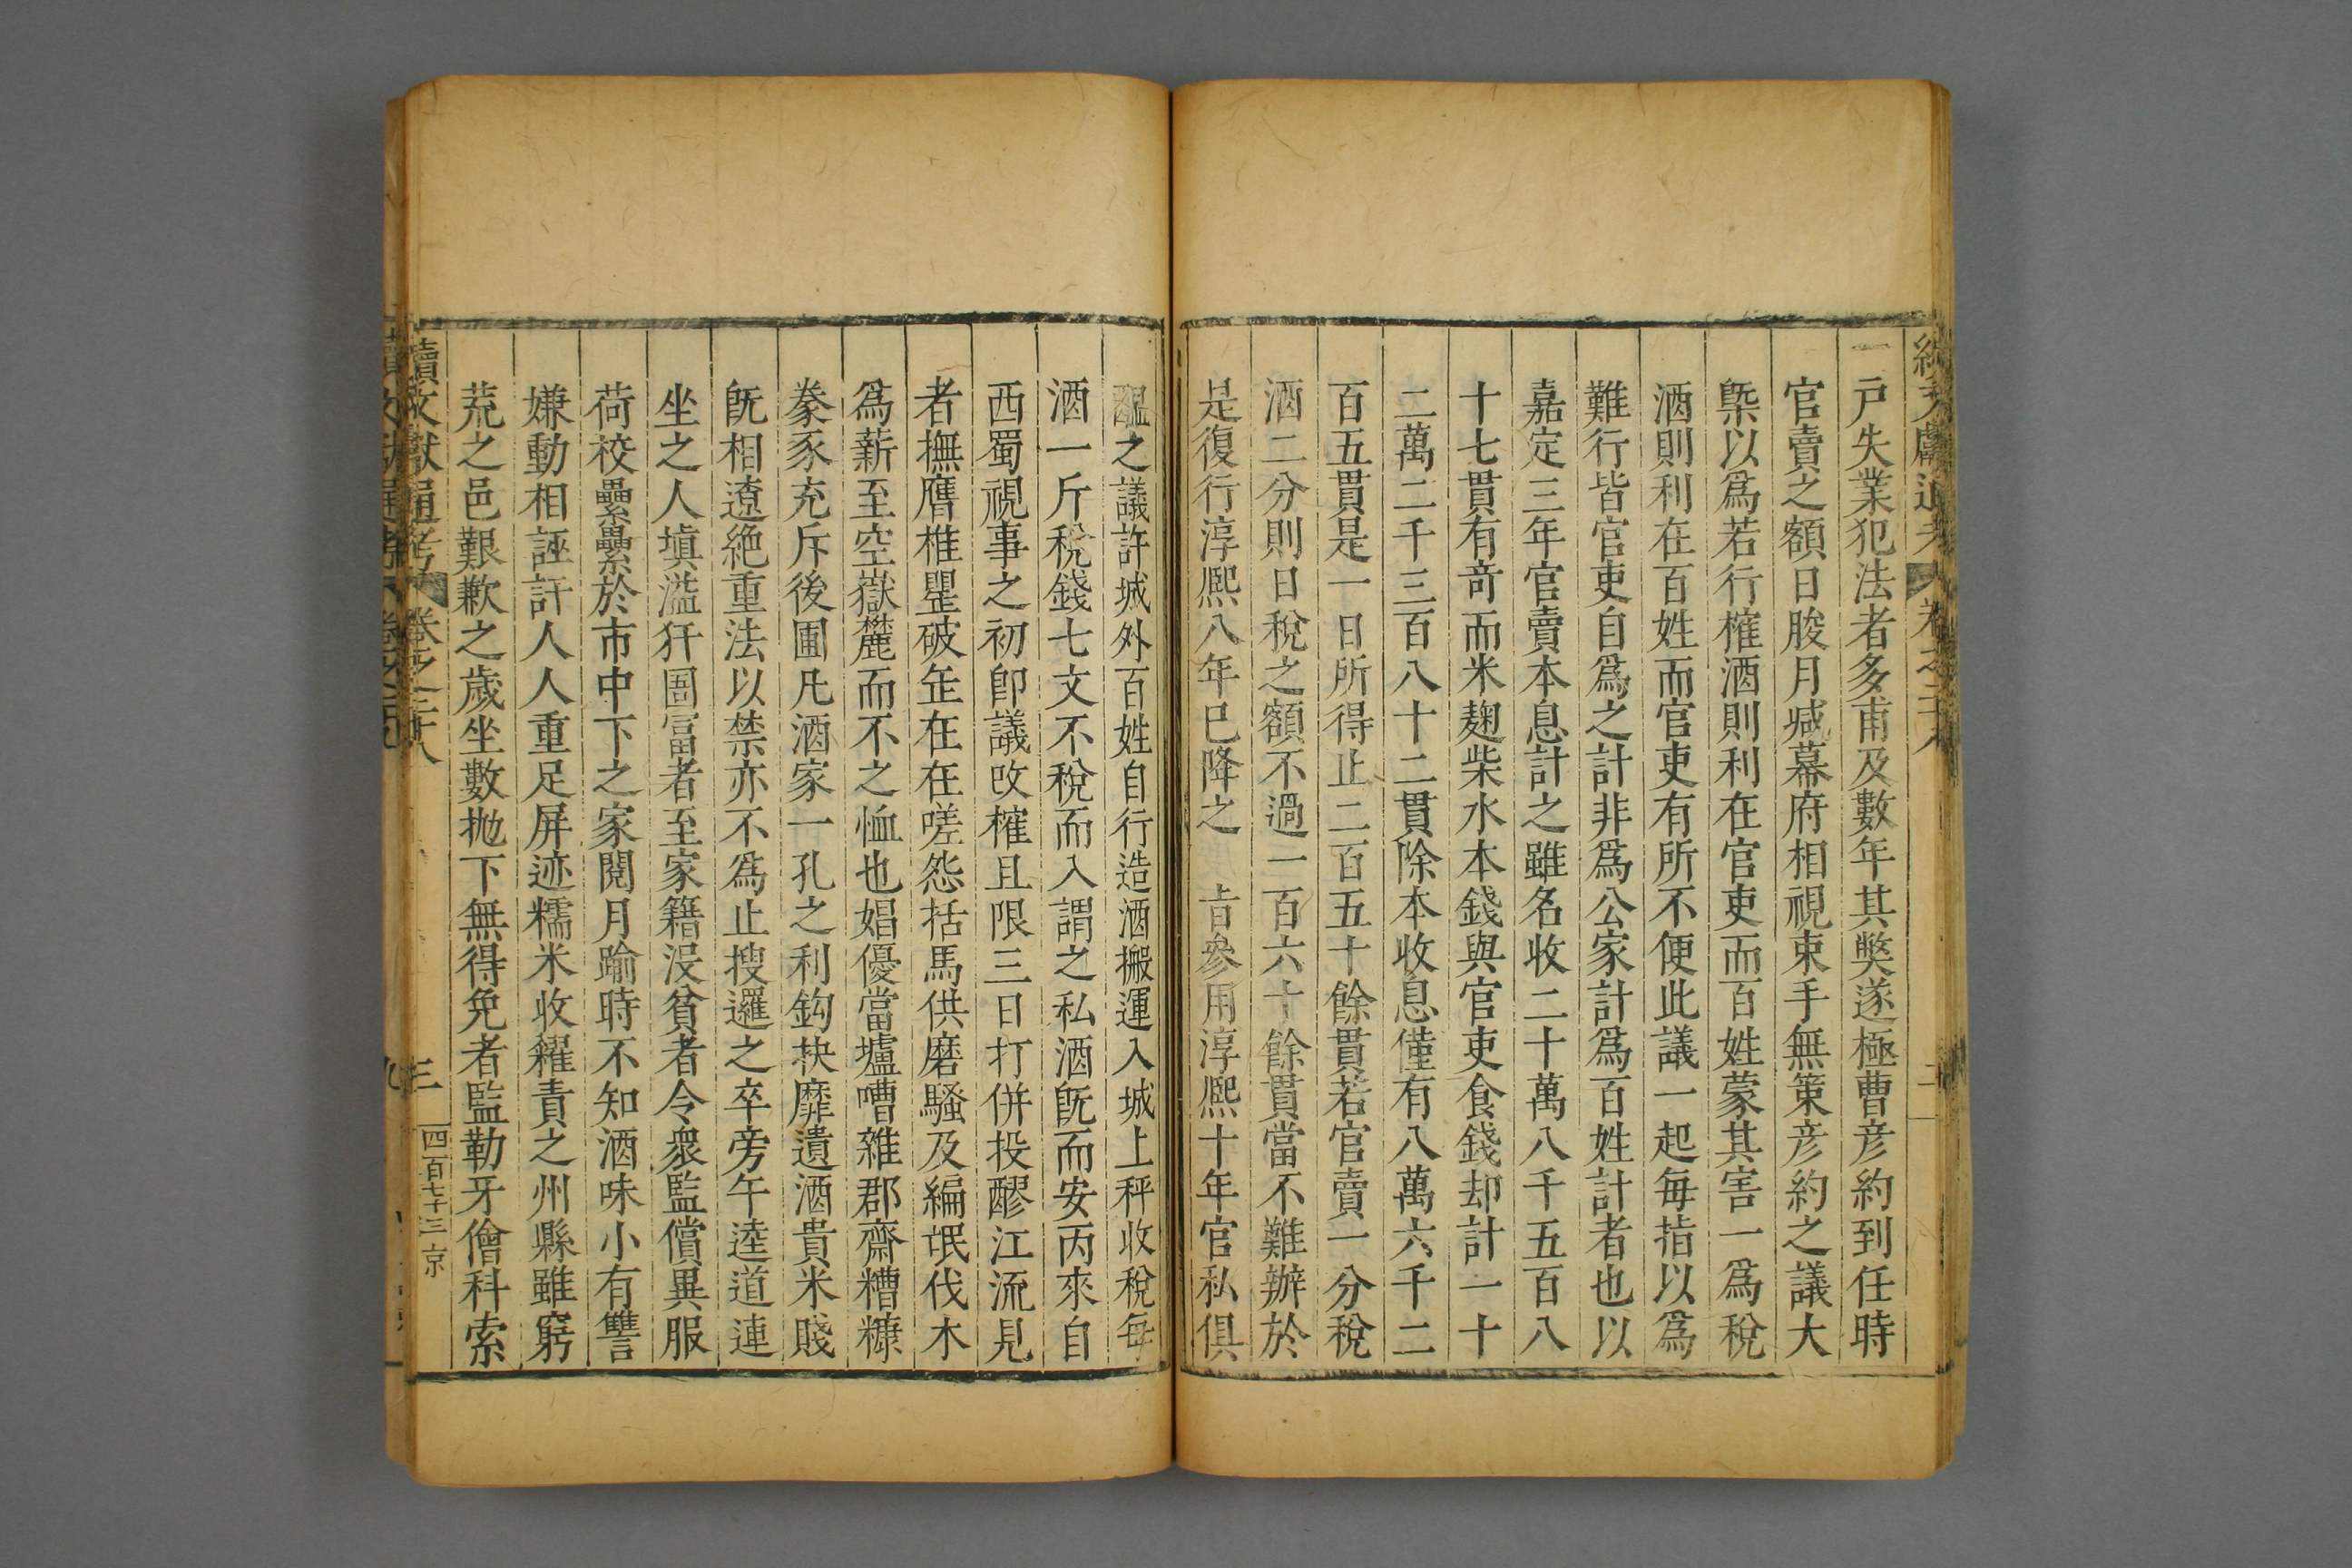 續文獻通考 卷之二十八 二
戶失業犯法者多甫及數年其獘遂極曹彥約到任時
官賣之額日朘月㓕幕府相視束手無策彥約之議大
槩以爲若行榷酒則利在官吏而百姓蒙其害一爲稅
酒則利在百姓而官吏有所不便此議一起每指以爲
難行皆官吏自爲之計非爲公家計爲百姓計者也以
嘉定三年官賣本息計之雖名收二十萬八千五百八
十七貫有竒而米麹柴水本錢與官吏食錢却計一十
二萬二千三百八十二貫除本收息僅有八萬六千二
百五貫是一日所得止二百五十餘貫若官賣一分稅
酒二分則日稅之額不過一百六十餘貫當不難辦於
是復行淳熙八年已降之 㫖參用淳熙十年官私俱
醖之議許城外百姓自行造酒搬運入城上秤收稅每
酒一斤稅錢七文不稅而入謂之私酒旣而安丙來自
西蜀視事之初卽議改榷且限三日打併投醪江流見
者撫膺椎罌破缶在在嗟怨括馬供磨騷及編氓伐木
爲薪至空嶽麓而不之恤也娼優當壚嘈雜郡齋糟糠
豢豕充斥後圃凡酒家一孔之利鈎抉靡遺酒貴米賤
旣相遼絶重法以禁亦不爲止搜邏之卒旁午逵道連
坐之人塡溢犴圄冨者至家籍沒貧者令衆監償異服
荷校纍纍於市中下之家閱月踰時不知酒味小有讐
嫌動相誣訐人人重足屏迹糯米收糴責之州縣雖窮
荒之邑艱歉之歲坐數抛下無得免者監勒牙儈科索
續文獻通考 卷之二十八 三 四百七十三 京